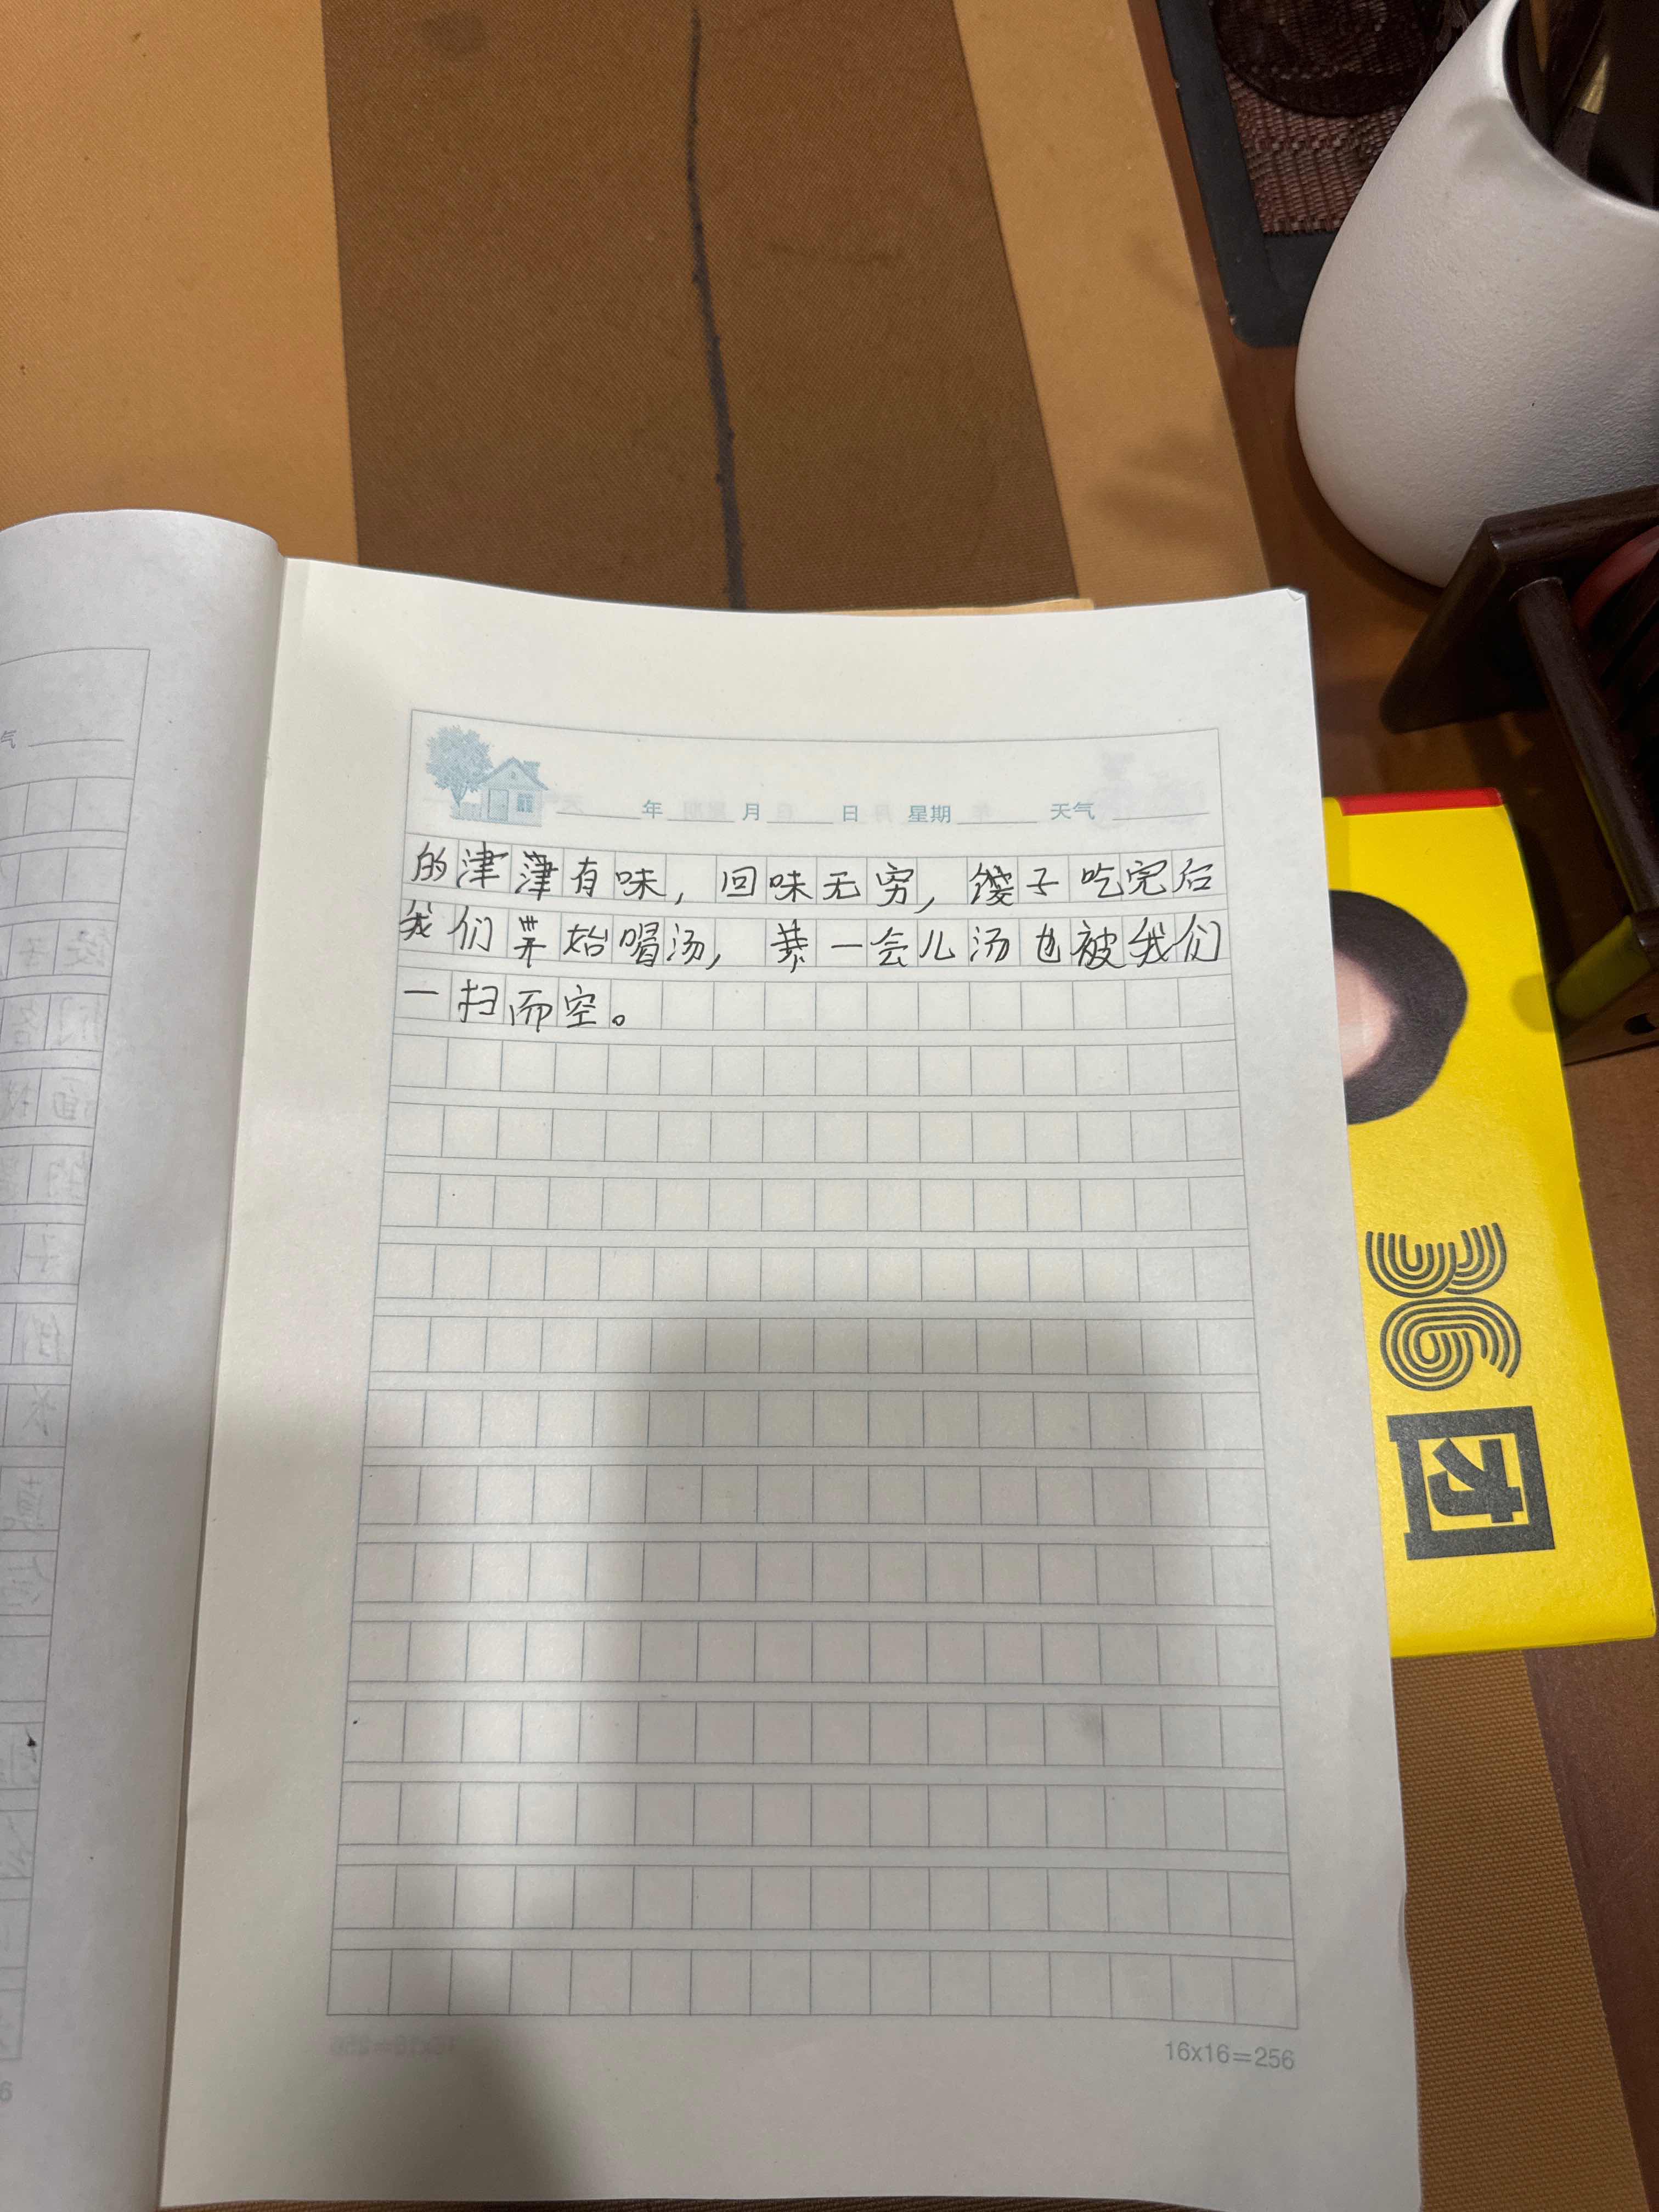 年 月 日 星期 天气
的津津有味，回味无穷，馊子吃完后
我们开始喝汤，一会儿汤也被我们
一扫而空。
16x16=256
36
团
气
6